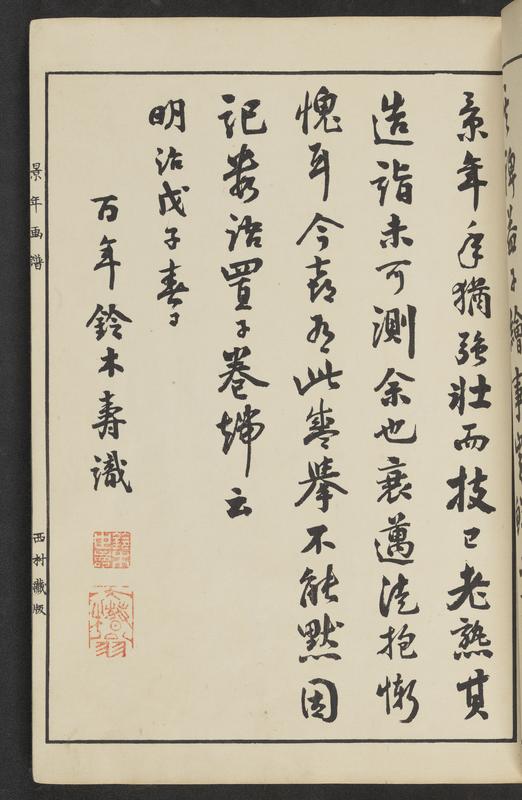 景年年猶強壯而技已老熟其
造詣未可測余也衰邁徒抱慚
愧耳今喜為此盛擧不能默因
記數語置于卷端云
明治戊子春日
百年鈴木壽識
景年画譜
西村藏版